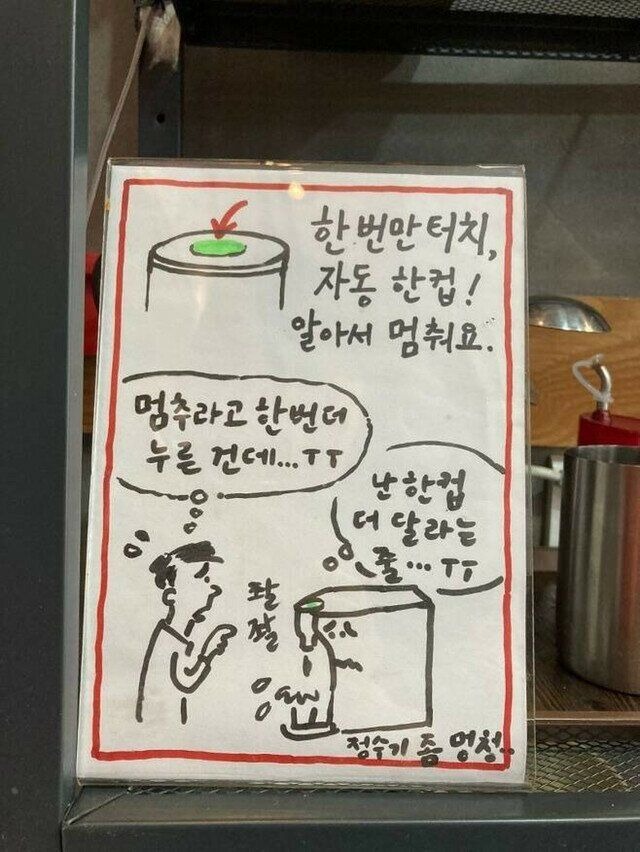 한 번만 터치,
자동 한컵!
알아서 멈춰요.
멈추라고 한번더
누른 건데...ㅜㅜ
난 한컵
더 달라는
줄...ㅜㅜ
콸
콸
정수기 좀 멍청..